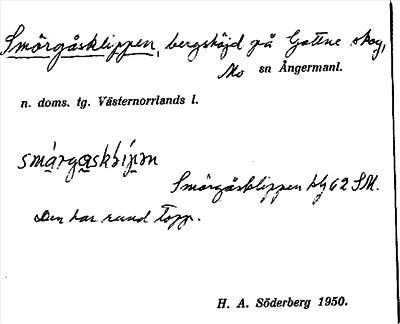 Smörgåsklippen, bergshöjd på Gottne skog,
Mo sn Ångermanl.
n. doms. tg. Västernorrlands l.
Smörgåsklippen blg 62 SM.
Den har rund topp.
H. A. Söderberg 1950.